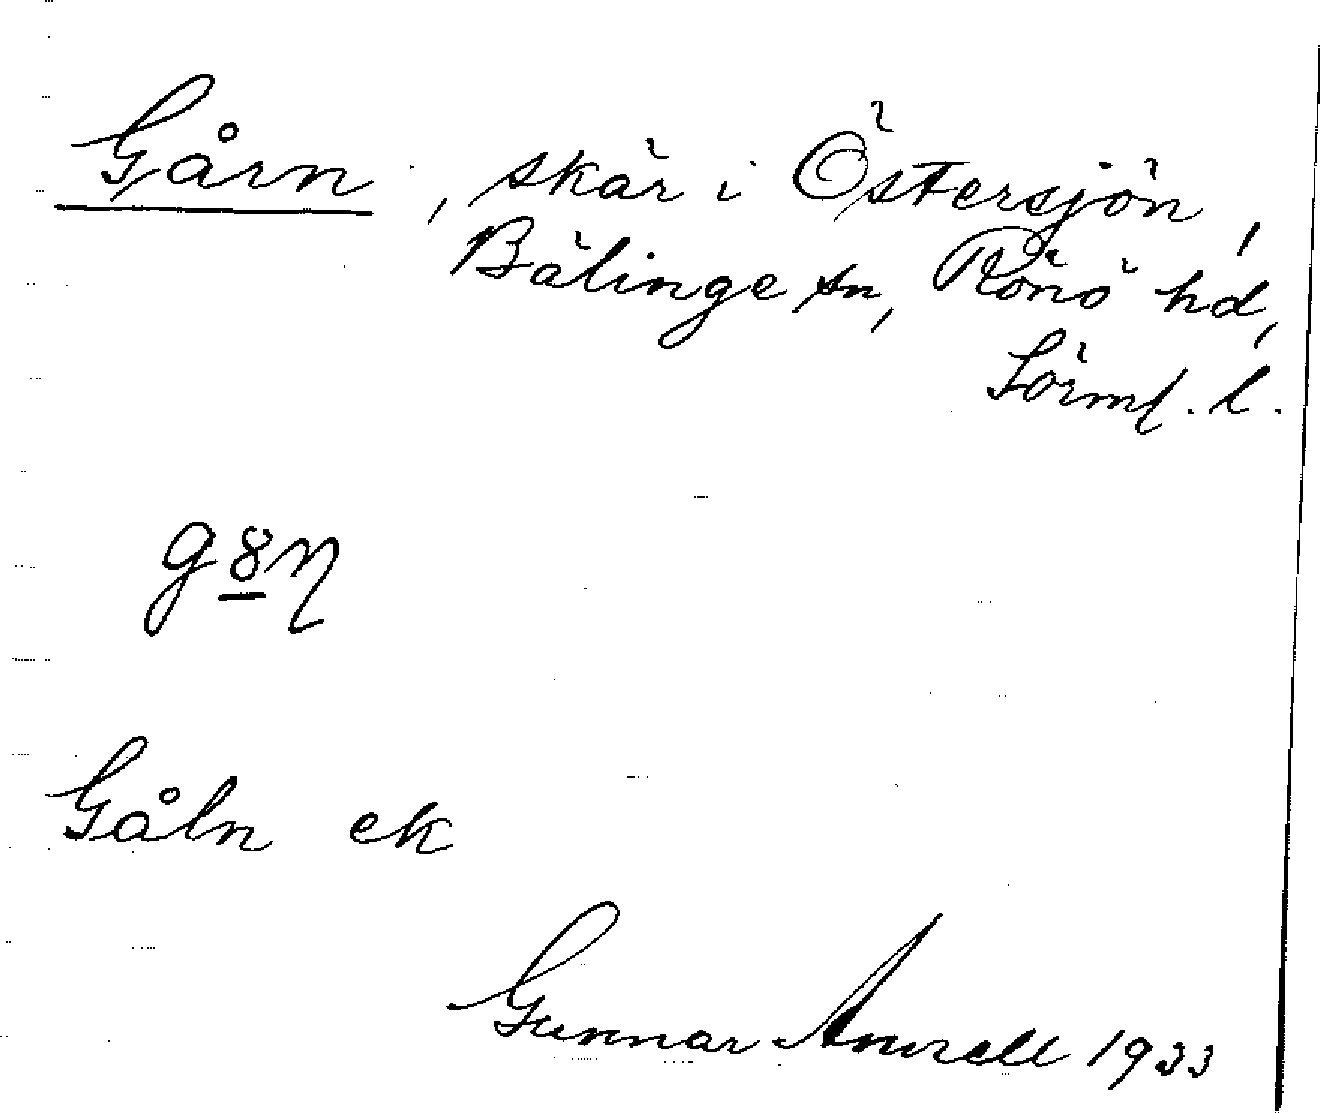 Gårn, skär i Östersjön,
Bälinge sn, Rönö hd,
Sörml. l.
g8η
Gåln ek
Gunnar Amrell 1933